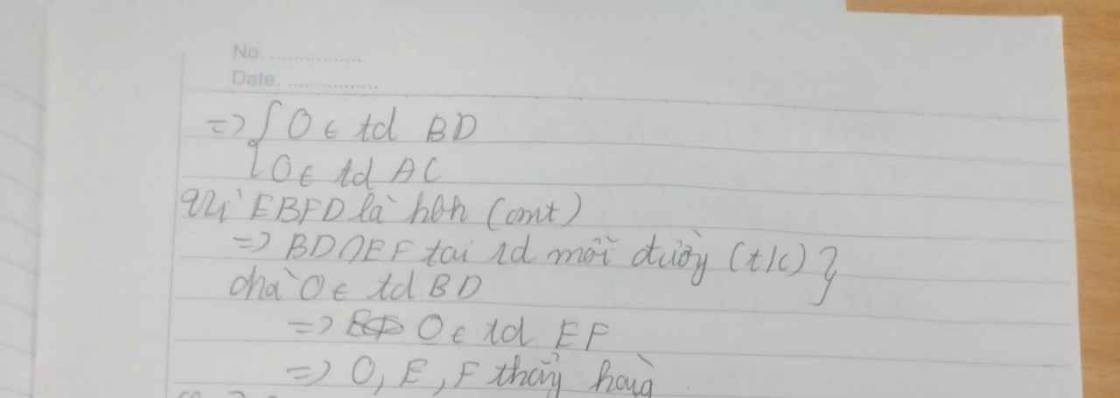 No. ..................
Date. ..................
=> { O ∈ td BD
O ∈ td AC
Vì EBFD là hbh (cmt)
=> BD ∩ EF tại td mỗi đường (t/c) }
mà O ∈ td BD
=> O ∈ td EF
=> O, E, F thẳng hàng